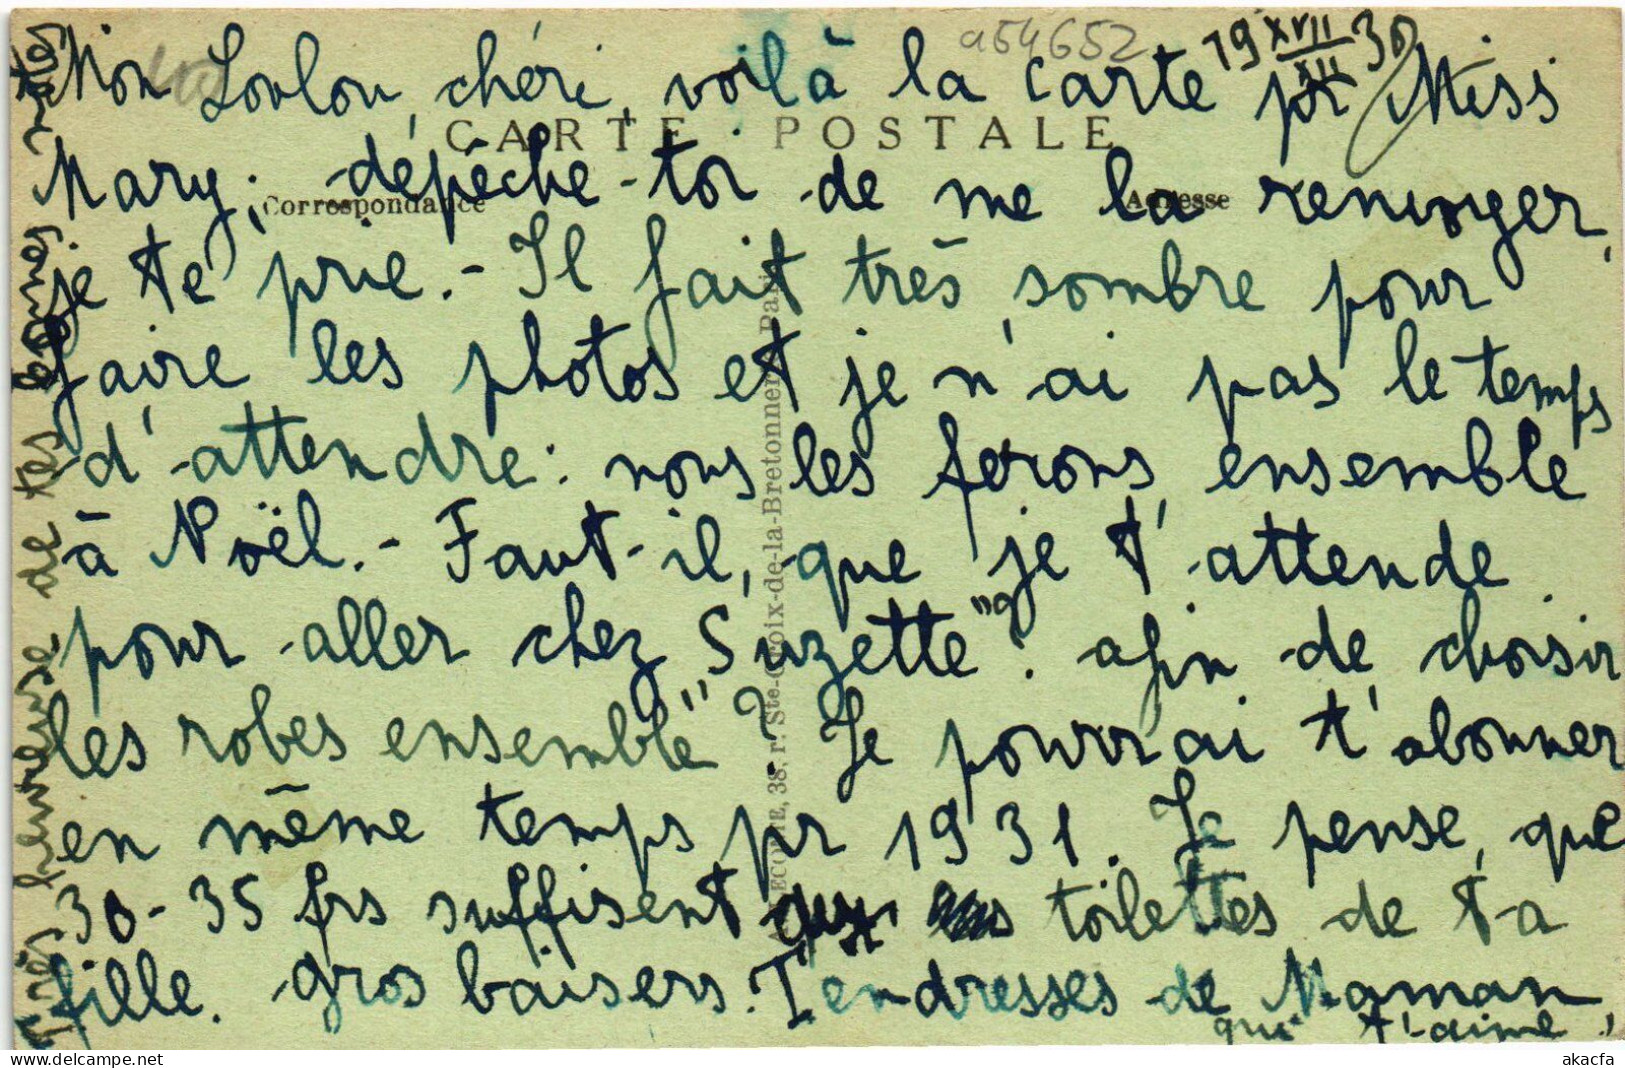 a54652
19 XVII/XII 30
Mon Loulou chéri, voilà la carte pr Miss
CARTE POSTALE
Mary; dépêche-toi de me la renvoyer,
Correspondance
Adresse
je te prie.- Il fait très sombre pour
faire les photos et je n'ai pas le temps
d'attendre: nous les ferons ensemble
à Noël.- Faut-il, que je t'attende
pour aller chez "Suzette"? afin de choisir
les robes ensemble"? Je pourrai t'abonner
en même temps pr 1931. Je pense, que
30-35 frs suffisent aux toilettes de ta
fille. gros baisers. Tendresses de Maman,
qui t'aime.
Très heureuse de tes bonnes notes
38, r. Ste-Croix-de-la-Bretonnerie Paris
akacfa